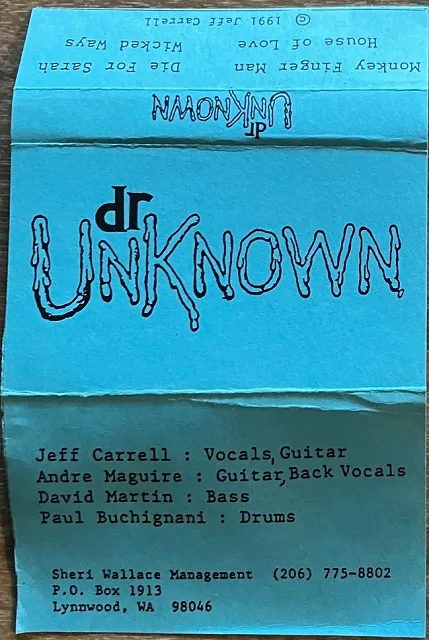 © 1991 Jeff Carrell
House of Love Wicked Ways
Monkey Finger Man Die For Sarah
dr
UNKNOWN
dr
UNKNOWN
Jeff Carrell : Vocals, Guitar
Andre Maguire : Guitar, Back Vocals
David Martin : Bass
Paul Buchignani : Drums
Sheri Wallace Management (206) 775-8802
P.O. Box 1913
Lynnwood, WA 98046